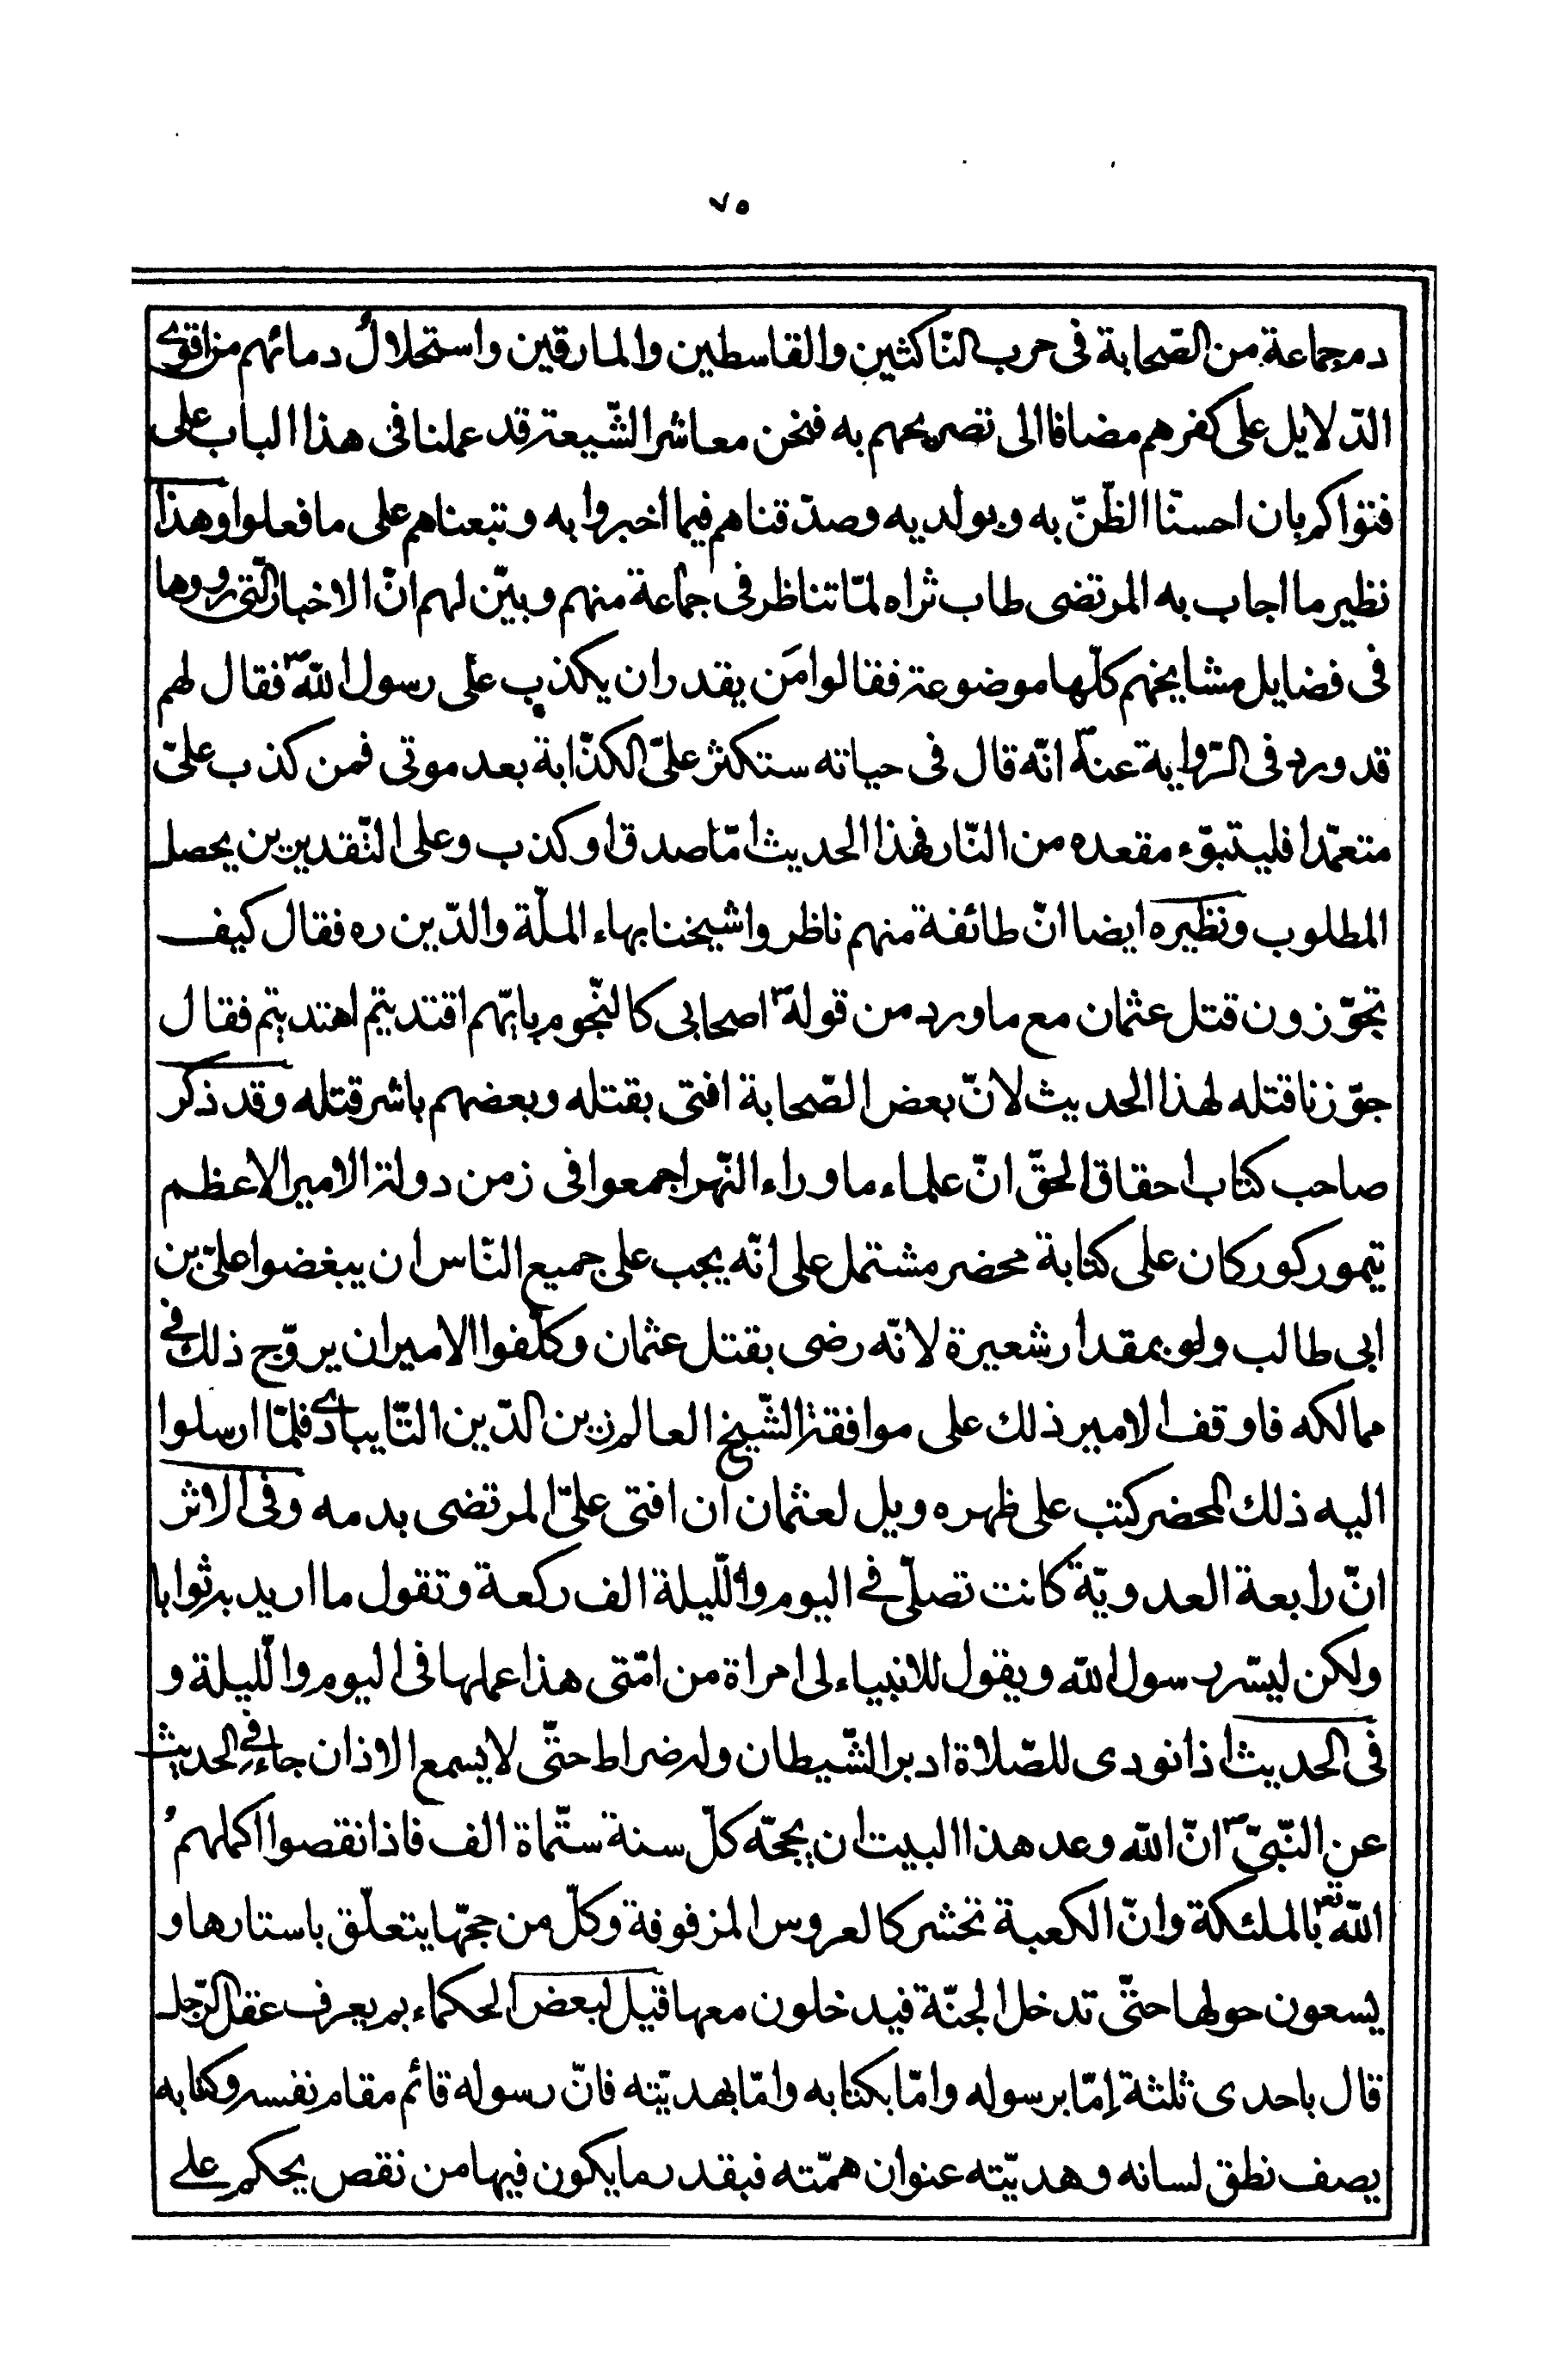 ٧٥
دم جماعة من الصّحابة فى حرب النّاكثين والقاسطين والمارقين واستحلالُ دمائهم من اقوى
الدّلايل على كفرهم مضافا الى تصريحهم به فنحن معاشر الشّيعة قد عملنا فى هذا الباب على
فتواكم بان احسنّا الظّنّ به وبولديه وصدّقناهم فيما اخبروا به وتبعناهم على ما فعلوا وهذا
نظير ما اجاب به المرتضى طاب ثراه لمّا تناظر فى جماعة منهم وبيّن لهم انّ الاخبار الّتى رووها
فى فضايل مشايخهم كلّها موضوعة فقالوا مَن يقدر ان يكذب على رسول اللّه ص فقال لهم
قد ورد فى الرّواية عنه ص انّه قال فى حياته ستكثر علىّ الكذّابة بعد موتى فمن كذب علىّ
متعمّدا فليتبوّء مقعده من النّار فهذا الحديث امّا صدق او كذب وعلى التّقديرين يحصل
المطلوب ونظيره ايضا انّ طائفة منهم ناظروا شيخنا بهاء الملّة والدّين ره فقال كيف
تجوّزون قتل عثمان مع ما ورد من قوله ص اصحابى كالنّجوم بايّهم اقتديتم اهتديتم فقال
جوّزنا قتله لهذا الحديث لانّ بعض الصّحابة افتى بقتله وبعضهم باشر قتله وقد ذكر
صاحب كتاب احقاق الحقّ انّ علماء ماوراء النّهر اجمعوا فى زمن دولة الامير الاعظم
تيمور كوركان على كتابة محضر مشتمل على انّه يجب على جميع النّاس ان يبغضوا علىّ بن
ابى طالب ولو بمقدار شعيرة لانّه رضى بقتل عثمان وكلّفوا الامير ان يروّج ذلك فى
ممالكه فاوقف الامير ذلك على موافقة الشّيخ العالم زين الدّين التّايبادى فلمّا ارسلوا
اليه ذلك المحضر كتب على ظهره ويل لعثمان ان افتى علىّ المرتضى بدمه وفى الاثر
انّ رابعة العدويّة كانت تصلّى فى اليوم والّليلة الف ركعة وتقول ما اريد به ثوابا
ولكن ليسّر رسول اللّه ويقول للانبياء لى امراة من امّتى هذا عملها فى اليوم والّليلة و
فى الحديث اذا نودى للصّلاة ادبر الشّيطان وله ضراط حتّى لا يسمع الاذان جاء فى الحديث
عن النّبىّ ص انّ اللّه وعد هذا البيت ان يحجّه كلّ سنة ستّماة الف فاذا نقصوا اكملهم
اللّه تع بالملئكة وانّ الكعبة تحشر كالعروس المزفوفة وكلّ من حجّها يتعلّق باستارها و
يسعون حولها حتّى تدخل الجنّة فيدخلون معها قيل لبعض الحكماء بم يعرف عقل الرّجل
قال باحدى ثلثة إمّا برسوله وامّا بكتابه وامّا بهديّته فانّ رسوله قائم مقام نفسه وكتابه
يصف نطق لسانه وهديّته عنوان همّته فبقدر ما يكون فيها من نقص يحكم على